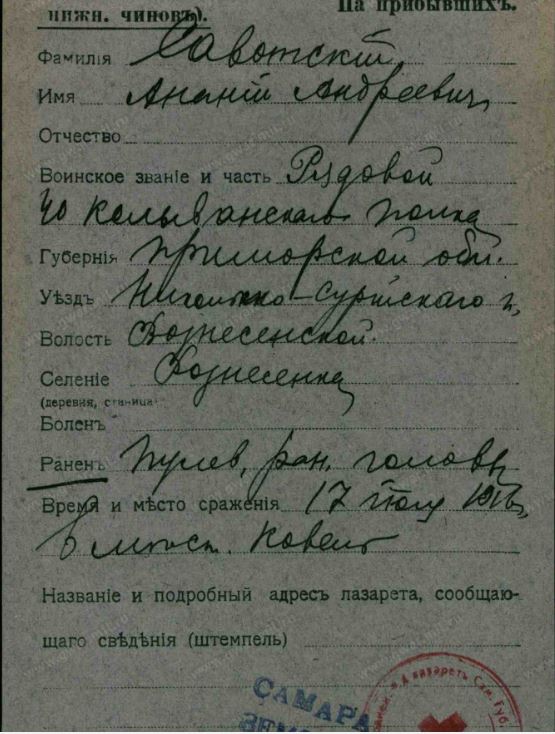 нижн. чиновъ).
На прибывшихъ.
Фамилія Савотскій
Имя Ананій Андреевич
Отчество
Воинское званіе и часть Рядовой
40 Колыванскаго полка
Губернія Приморской обл.
Уѣздъ Никольско-Суртскаго у,
Волость Вознесенской.
Селеніе Вознесенка
(деревня, станица
Боленъ
Раненъ Пулев, ран. головы
Время и мѣсто сраженія 17 Июлу 1916,
в мѣст. Ковель
Названіе и подробный адресъ лазарета, сообщаю-
щаго свѣдѣнія (штемпель)
САМАРА
ЗЕМ
лазаретъ Сам. Губ.